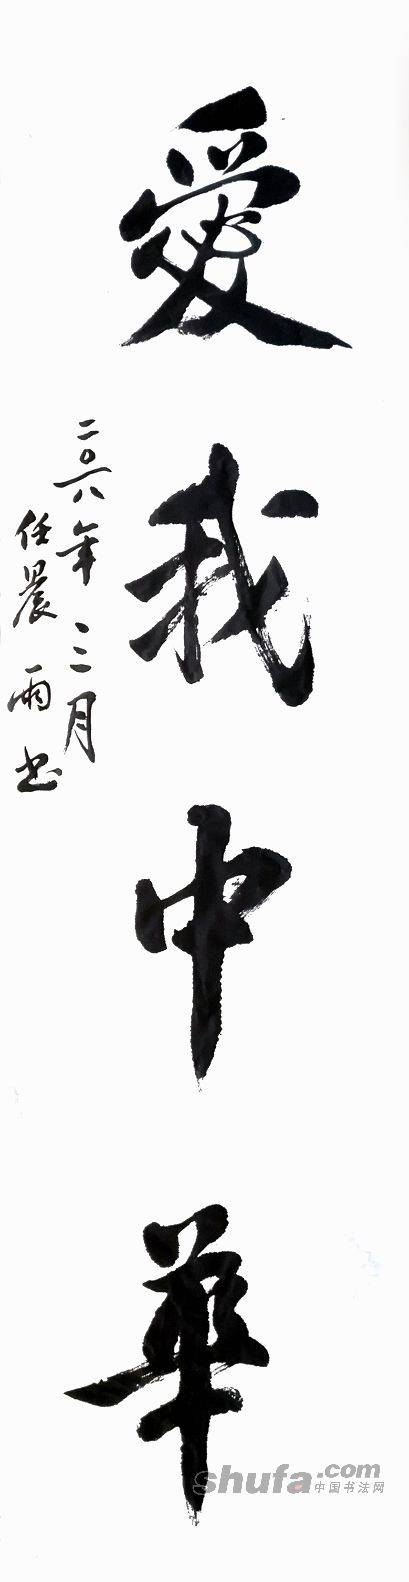 愛我中華
二〇一八年三月
任晨雨书
shufa.com
中国书法网